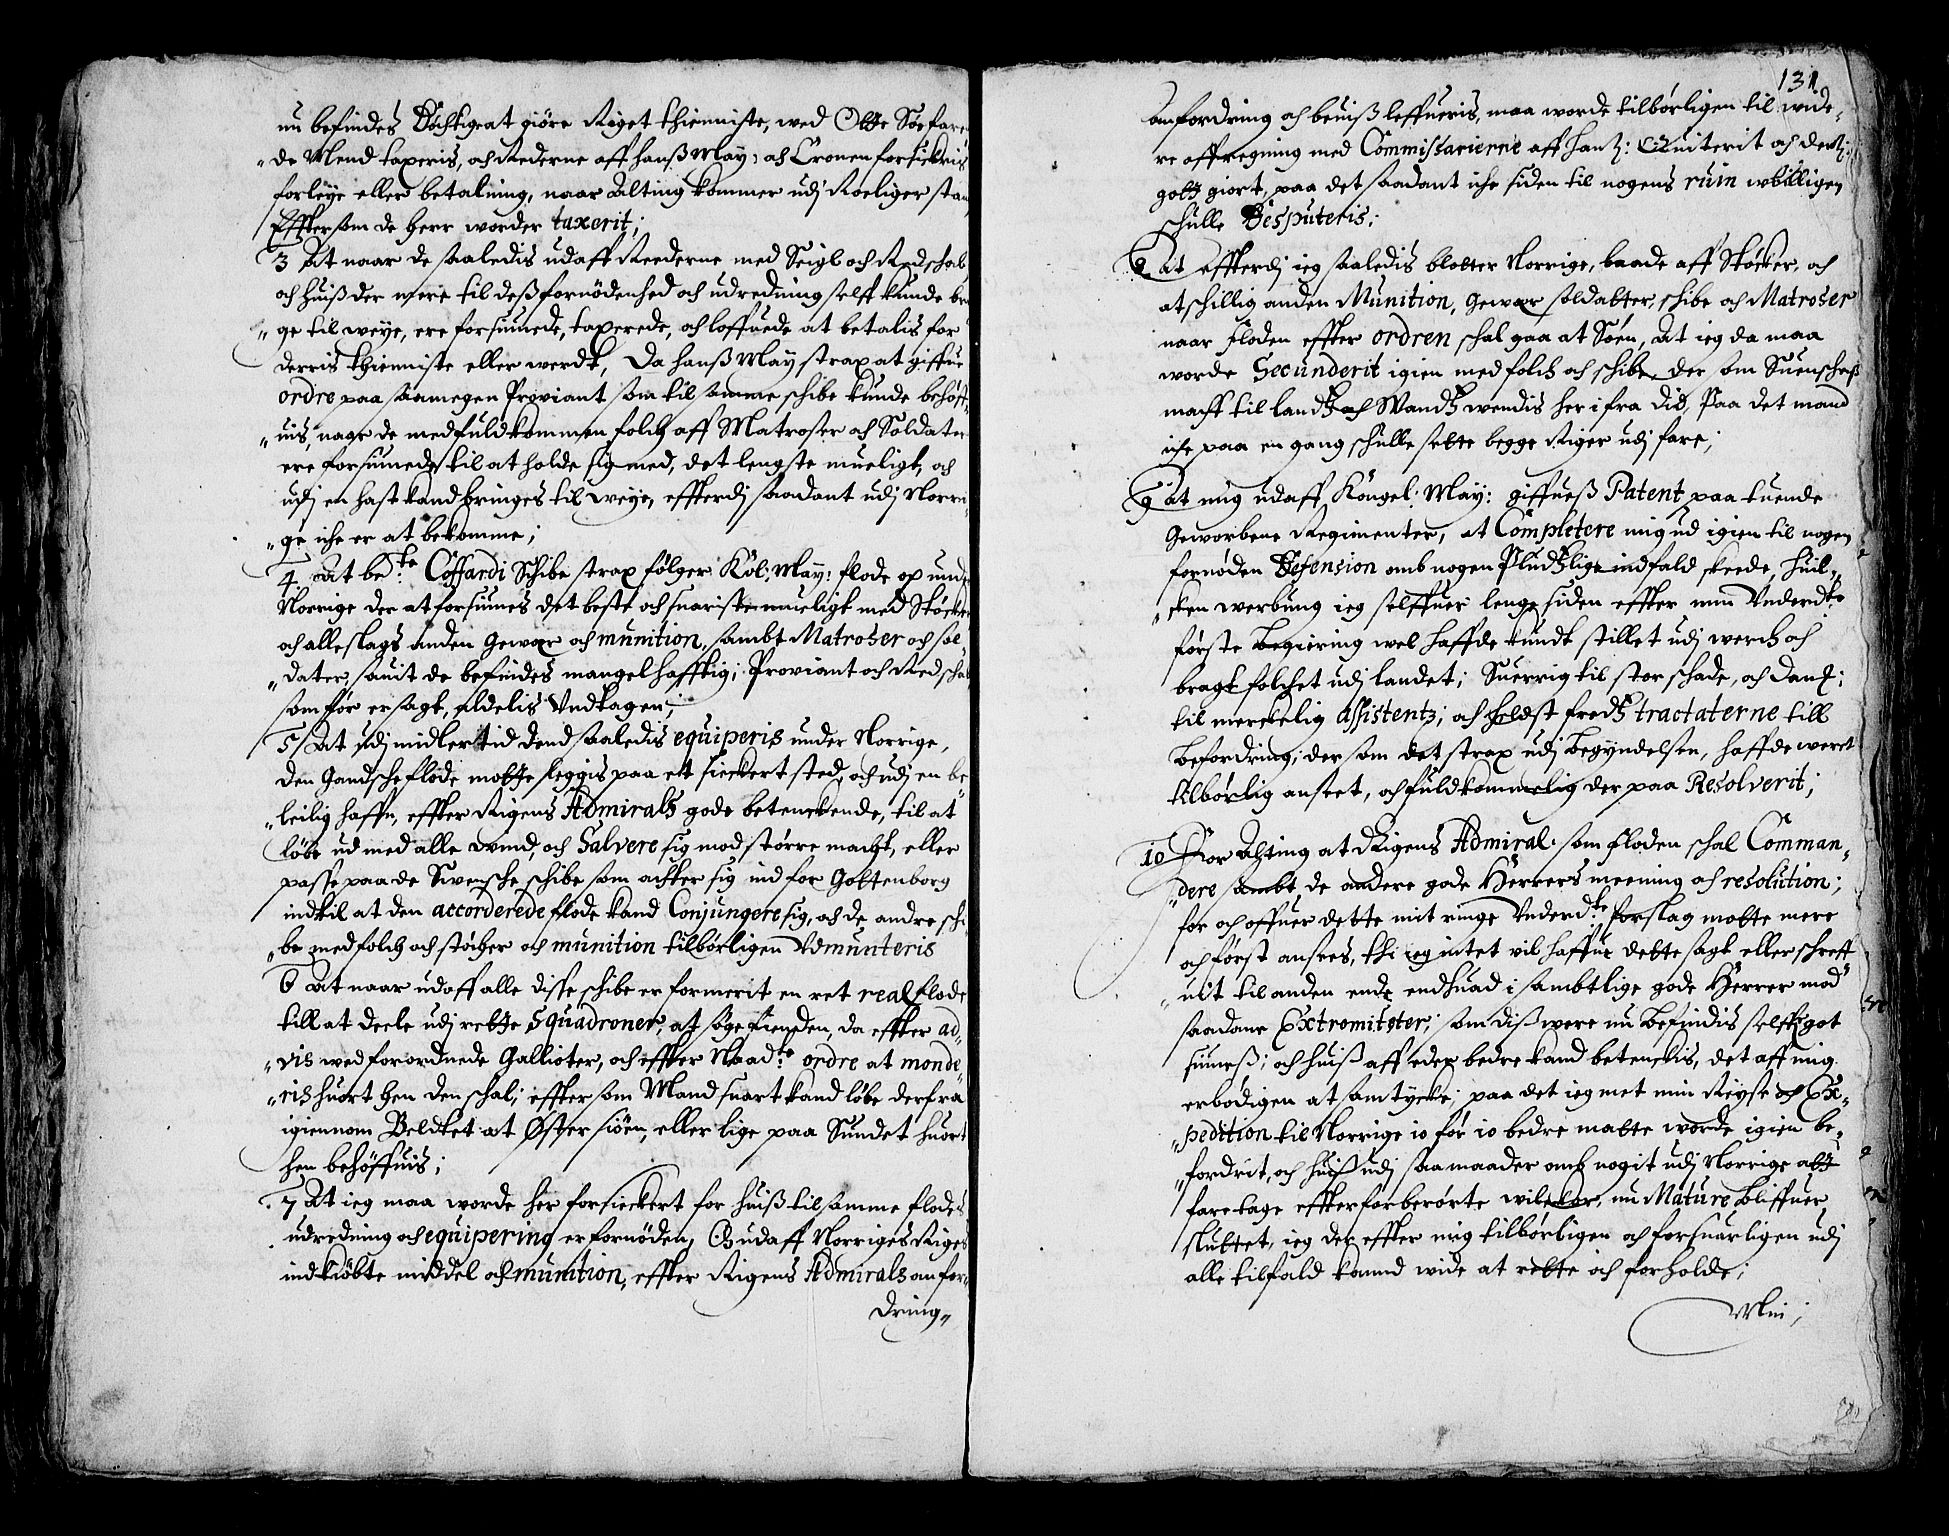 nu befindes Döchtige at giöre Riget thienniste, wed Otte Söefaren
de Mend taxeris, och Rederne aff hanß May: och Cronen forsickris
forleye eller betalning, naar Alting kommer udj Roeliger stand
Effter som de herr worder taxerit;
3 At naar de saaledis udaff Reederne med Seigl och Redschab
och huiß der mere til deß fornödenhed och udredning self kunde brin
ge til weye, ere forsunede, taxerede, och loffuede at betalis for
derris thienniste eller werdt, Da hanß May strax at giffue
ordre paa saamegen Proviant som til samme schibe kunde behöff-
uis, naar de med fuldkommen folch aff Matroser och Soldater
ere forsunede til at holde sig med, det lengste mueligt, och
udj en hast kand bringes til weye, effterdj saadant udj Norri-
ge iche er at bekomme;
4 At bete Coffardi Schibe strax fölger Köl: May: flode op under
Norrige der at forsunes det beste och snariste mueligt med Stöcker
och alle slags anden Gewær och munition, sambt Matroser och sol-
dater, sauit de befindes mangelhafftig; Proviant och Redschab
som för er sagt, aldelis Undtagen;
5 At udj midler tid dend saaledis equiperis under Norrige,
Den Gandsche flode motte leggis paa ett sieckert sted, och udj en be-
leilig haffn, effter Rigens Admirals gode betenckende, til at
löbe ud med alle vind, och Salvere sig mod större macht, eller
passe paa de Swensche schibe som achter sig ind for Gottenborg
indtil at den accorderede flode kand Conjungere sig, och de andre schi-
be med folch och stöcher och munition tilbörligen Udmunteris
6 At naar udaff alle disse schibe er formerit en ret real flode
till at deele udj rette Squadroner, at söge fienden, da effter ad-
vis wed forordnede Gallioter, och effter Naadte ordre at monde-
ris huort hen den schal; effter som Mand snart kand löbe derfra
igiennom Beldtet at Østersiöen, eller lige paa Sundet huort
hen behöffuis;
7 At ieg maa worde her forsieckert for huiß til samme flodes
udredning och equipering er fornöden, udaff Norriges Riges
indkiöbte middel och munition, effter Rigens Admirals anfor-
dring

131
anfordring och beuiß leffueris, maa worde tilbörligen til wide-
re affregning med Commissarierne aff hanß: Quiterit och
gott giort, paa det saadant iche siden til nogens ruin ubilligen
schulle Desputeris;
8 At effterdj ieg saaledis blotter Norrige, baade aff Stöcker, och
atschillig anden Munition, Gewær soldatter, schibe och Matroser
naar floden effter ordren schal gaa at Söen, At ieg da maa
worde Secunderit igien med folch och schibe, der som Suensches
macht til landtz och Wandtz wendis her ifra did, Paa det mand
iche paa en gang schulle sette begge Riger udj fare;
9 At mig udaff Kongel: May: giffues Patent paa tuende
Geworbene Regimenter, at Completere mig ud igien til nogen
fornöden Defension omb nogen Pludtzlig indfald skeede, huil-
cken werbung ieg selffuer lenge siden effter min Underdte
förste begiering wel haffde kundt stillet udj werch och
bragt folchet udj landet; Suerrig til stor schade, och Danß:
til merckelig Assistentz; och helst fredtz tractaterne till
befordring; der som det strax udj begyndelsen, haffde weret
tilbörlig anseet, och fuldkommelig der paa Resolverit;
10 For Alting at Rigens Admiral som floden schal Comman-
dere sambt de andere gode Herrers meening och resolution;
for och offuer dette mit ringe Underdte forslag motte mere
och först ansees, thi ieg intet vil haffue dette sagt eller schreff-
uit til anden ende end huad i sambtlige gode Herrer mod
saadane Extremiteter; som diß were nu befindis selff got
siuneß; och huiß aff eder bedre kand betenckis, det aff mig
erbödigen at samtycke; paa det ieg met min Reyse och Ex-
pedition til Norrige io för io bedre matte worde igien be-
fordrit, och huiß udj saamaader omb nogit udj Norrige at
faretage effter forberörte wilckor, nu Mature bliffuer
sluttet, ieg der effter mig tilbörligen och forsuarligen udj
alle tilfald kunnd wide at rette och forholde;
Min;